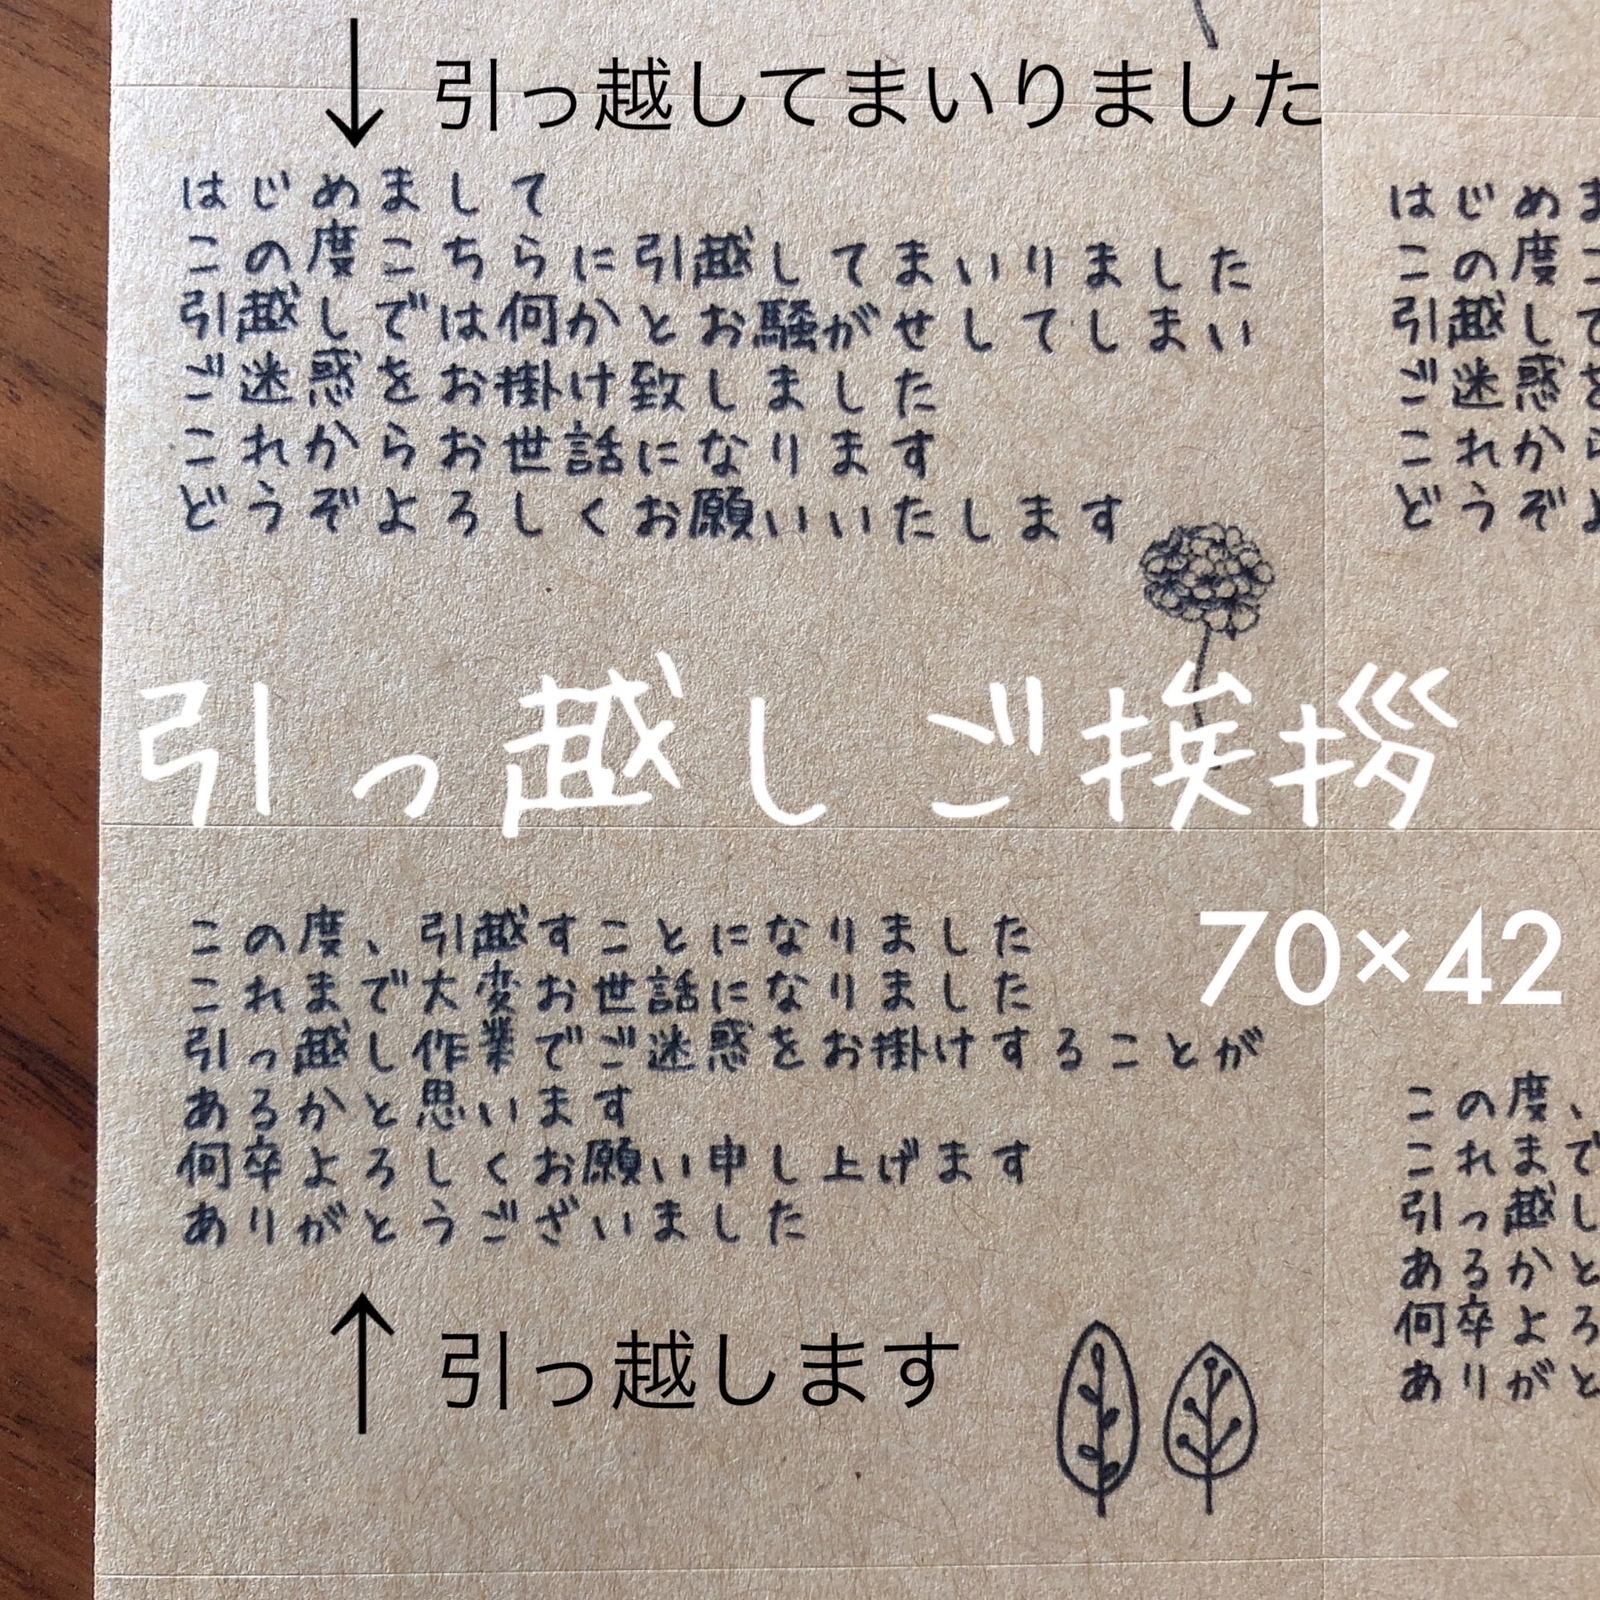 引っ越してまいりました
はじめまして
この度こちらに引越してまいりました
引越しでは何かとお騒がせしてしまい
ご迷惑をお掛け致しました
これからお世話になります
どうぞよろしくお願いいたします
はじめま
この度こ
引越しで
ご迷惑を
これから
どうぞよ
引っ越しご挨拶
70×42
この度、引越すことになりました
これまで大変お世話になりました
引っ越し作業でご迷惑をお掛けすることが
あるかと思います
何卒よろしくお願い申し上げます
ありがとうございました
この度、
これまで
引っ越し
あるかと
何卒よろ
ありがと
引っ越します